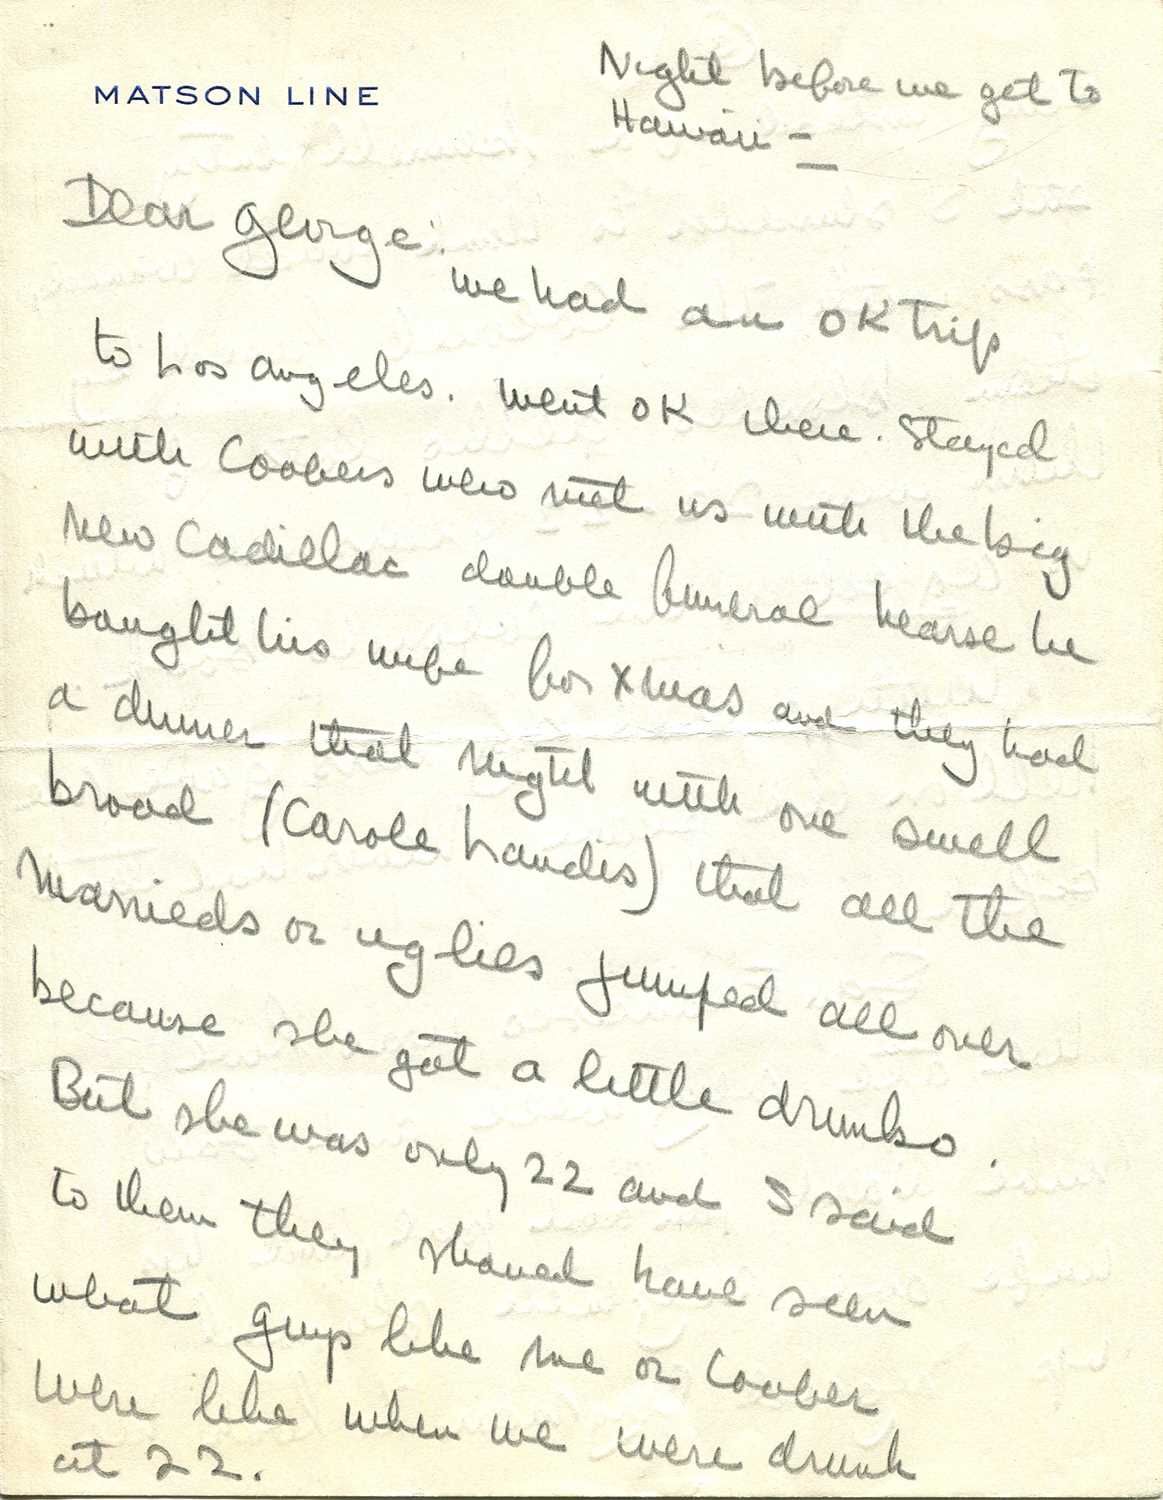 MATSON LINE
Night before we get to
Hawaii —
Dear George:
We had an OK trip
to Los Angeles. Went OK there. Stayed
with Coopers who met us with the big
new Cadillac double funeral hearse he
bought his wife for Xmas and they had
a dinner that night with one swell
broad (Carole Landis) that all the
Marrieds or uglies jumped all over
because she got a little drunko.
But she was only 22 and I said
to them they should have seen
what guys like me or Cooper
were like when we were drunk
at 22.